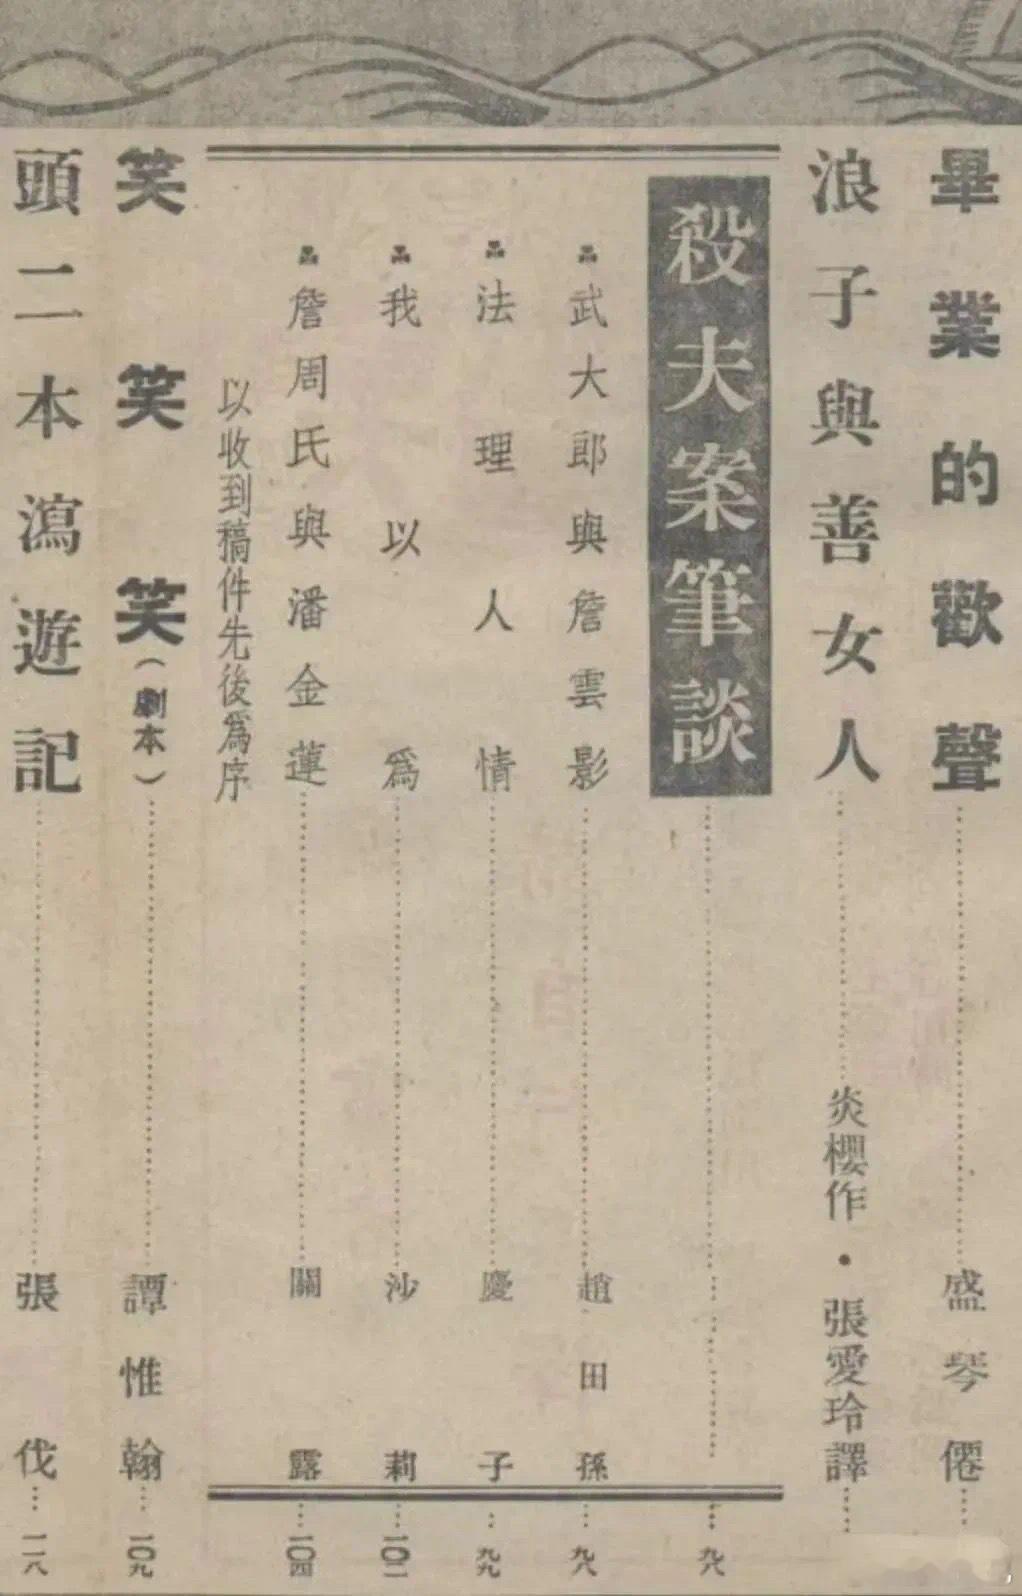 畢業的歡聲……盛琴僊……
浪子與善女人……炎櫻作・張愛玲譯……
殺夫案筆談……九八
武大郎與詹雲影……趙田孫……九八
法理人情……慶子…九九
我以爲……沙莉…一〇二
詹周氏與潘金蓮……關露…一〇四
以收到稿件先後爲序
笑笑笑(劇本)……譚惟翰…一〇九
頭二本瀉遊記……張伐…一一八